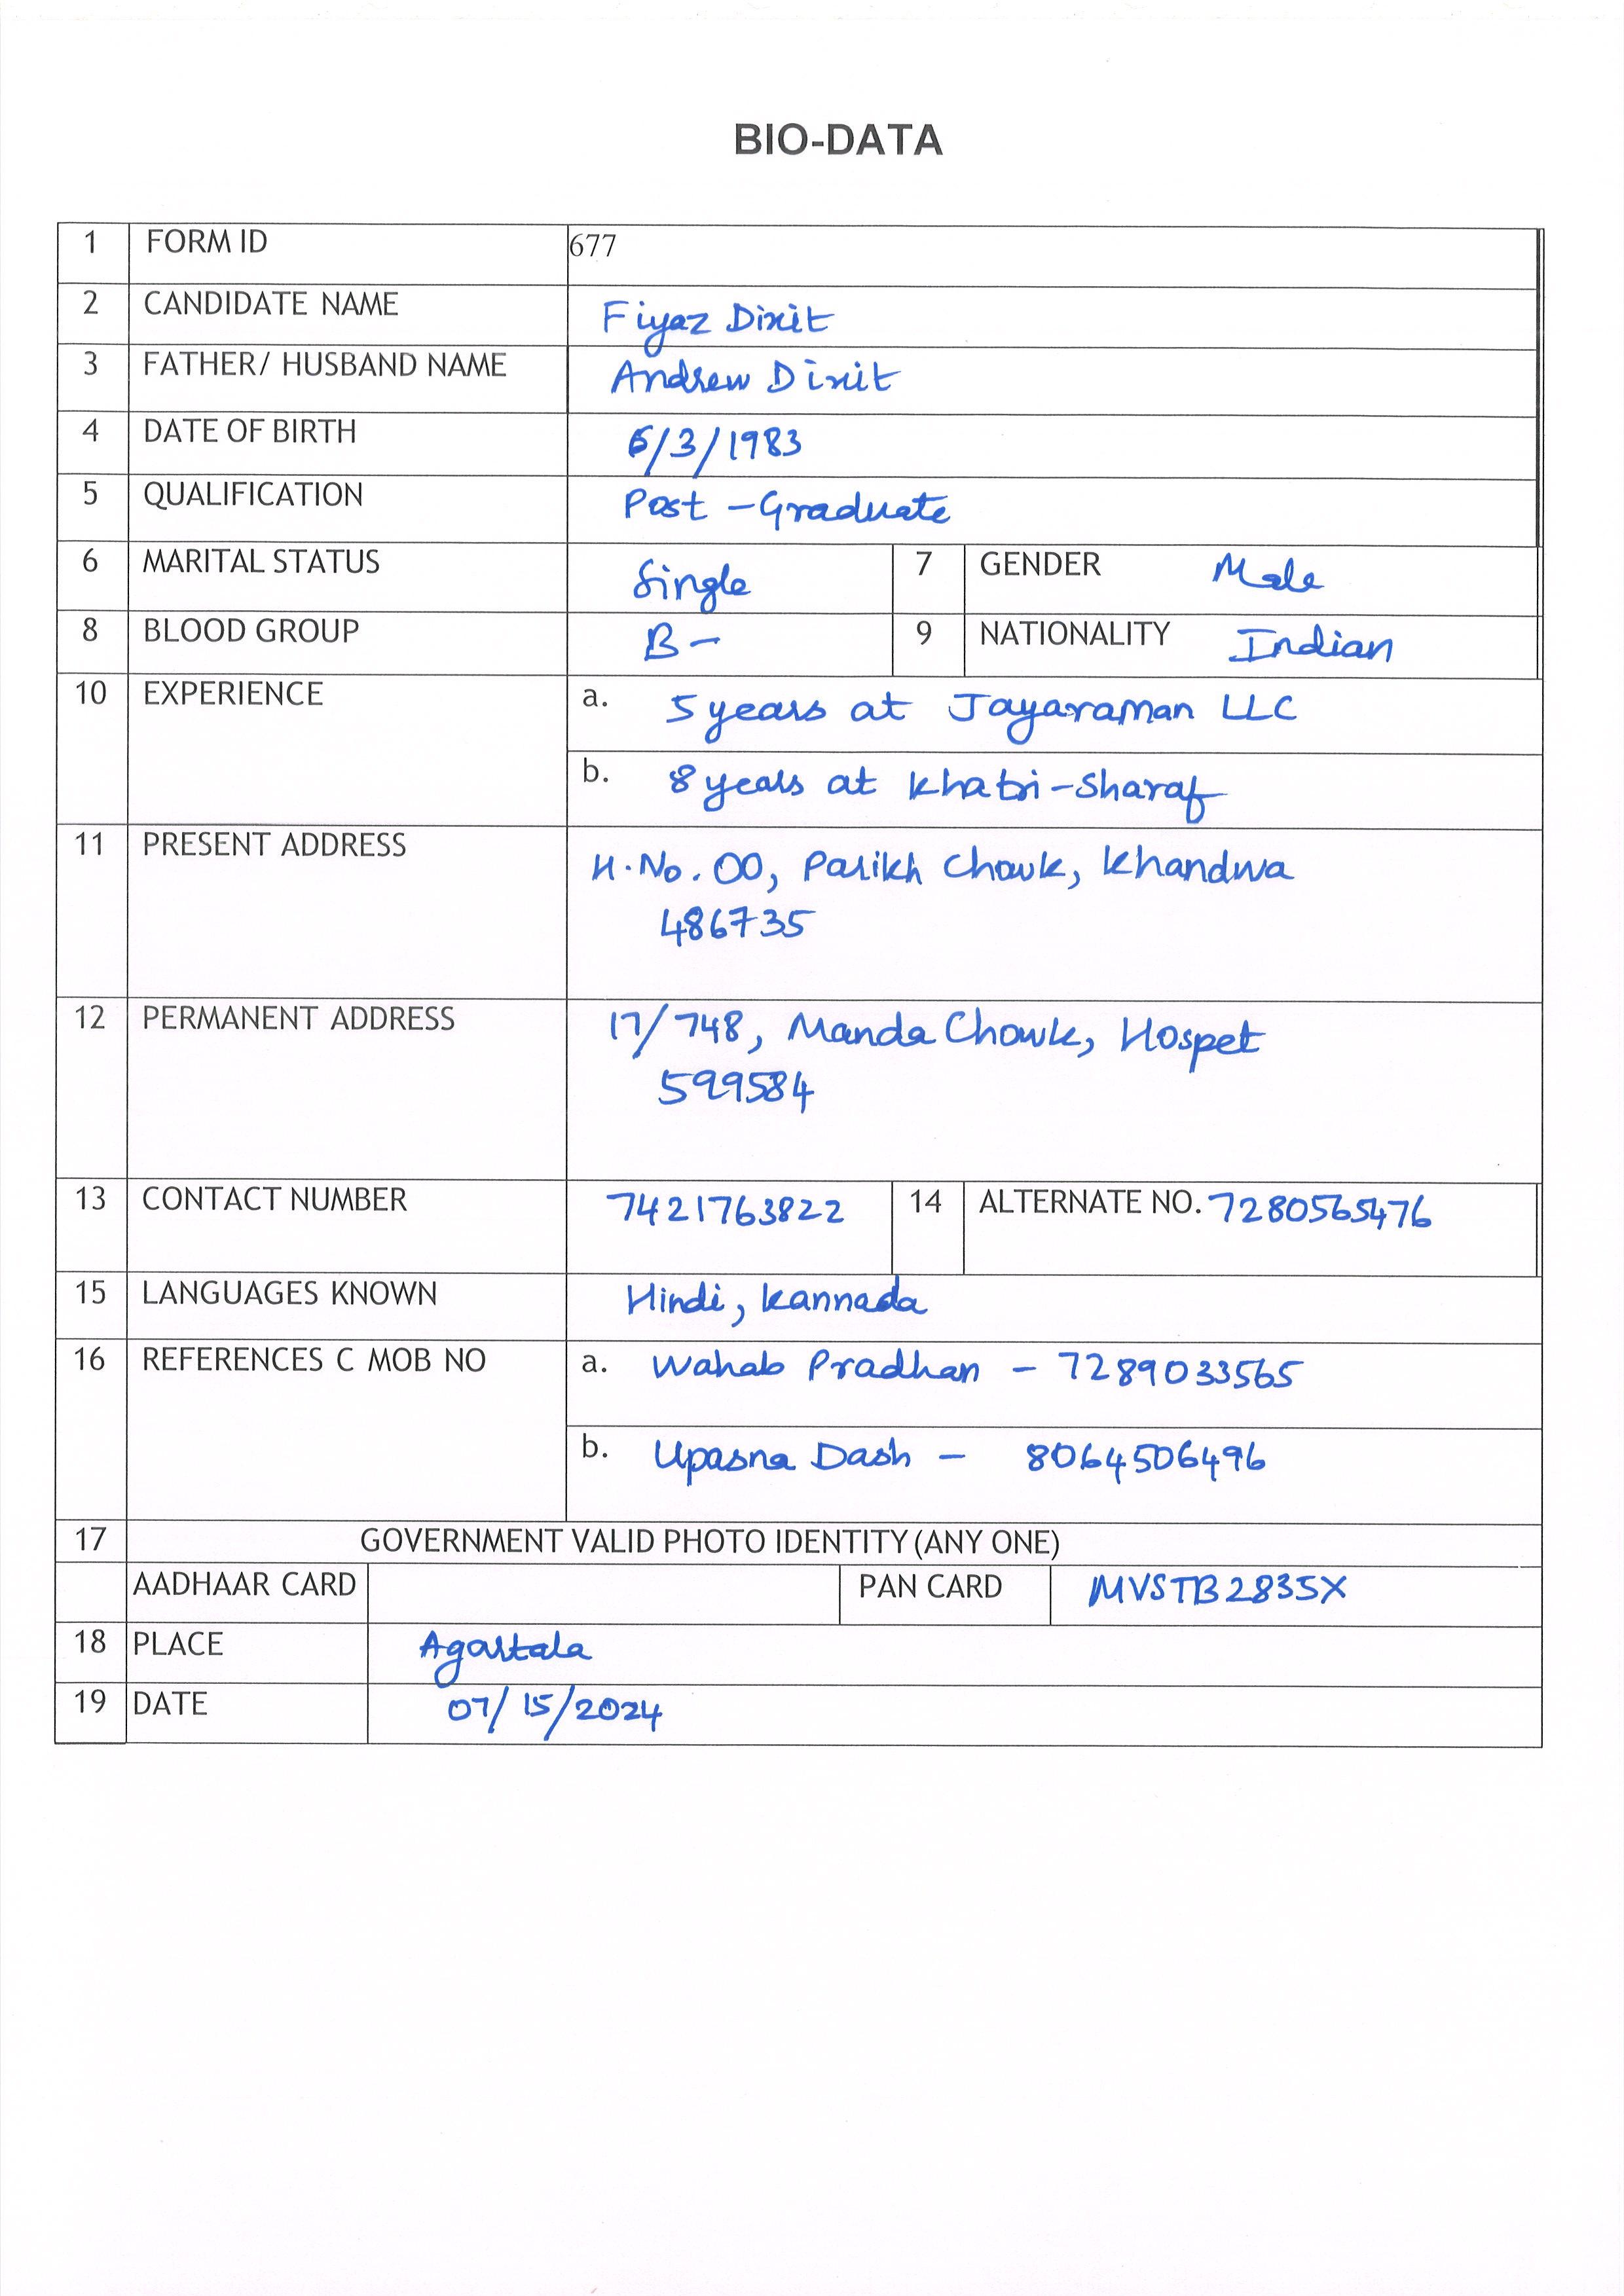 BIO-DATA
1 FORM ID 677
2 CANDIDATE NAME Fiyaz Dixit
3 FATHER/ HUSBAND NAME Andrew Dixit
4 DATE OF BIRTH /3/1983
5 QUALIFICATION Post-Graduate
6 MARITAL STATUS Single 7 GENDER Male
8 BLOOD GROUP B- 9 NATIONALITY Indian
10 EXPERIENCE a. 5 years at Jayaraman LLC
b. 8 years at Khatri-Sharaf
11 PRESENT ADDRESS H.No. 00, Parikh Chowk, Khandwa
486735
12 PERMANENT ADDRESS 17/748, Manda Chowk, Hospet
599584
13 CONTACT NUMBER 7421763822 14 ALTERNATE NO. 7280565476
15 LANGUAGES KNOWN Hindi, Kannada
16 REFERENCES C MOB NO a. Wahab Pradhan - 7289033565
b. Upasna Dash - 8064506496
17 GOVERNMENT VALID PHOTO IDENTITY (ANY ONE)
AADHAAR CARD PAN CARD MVSTB2835X
18 PLACE Agartala
19 DATE 07/15/2024